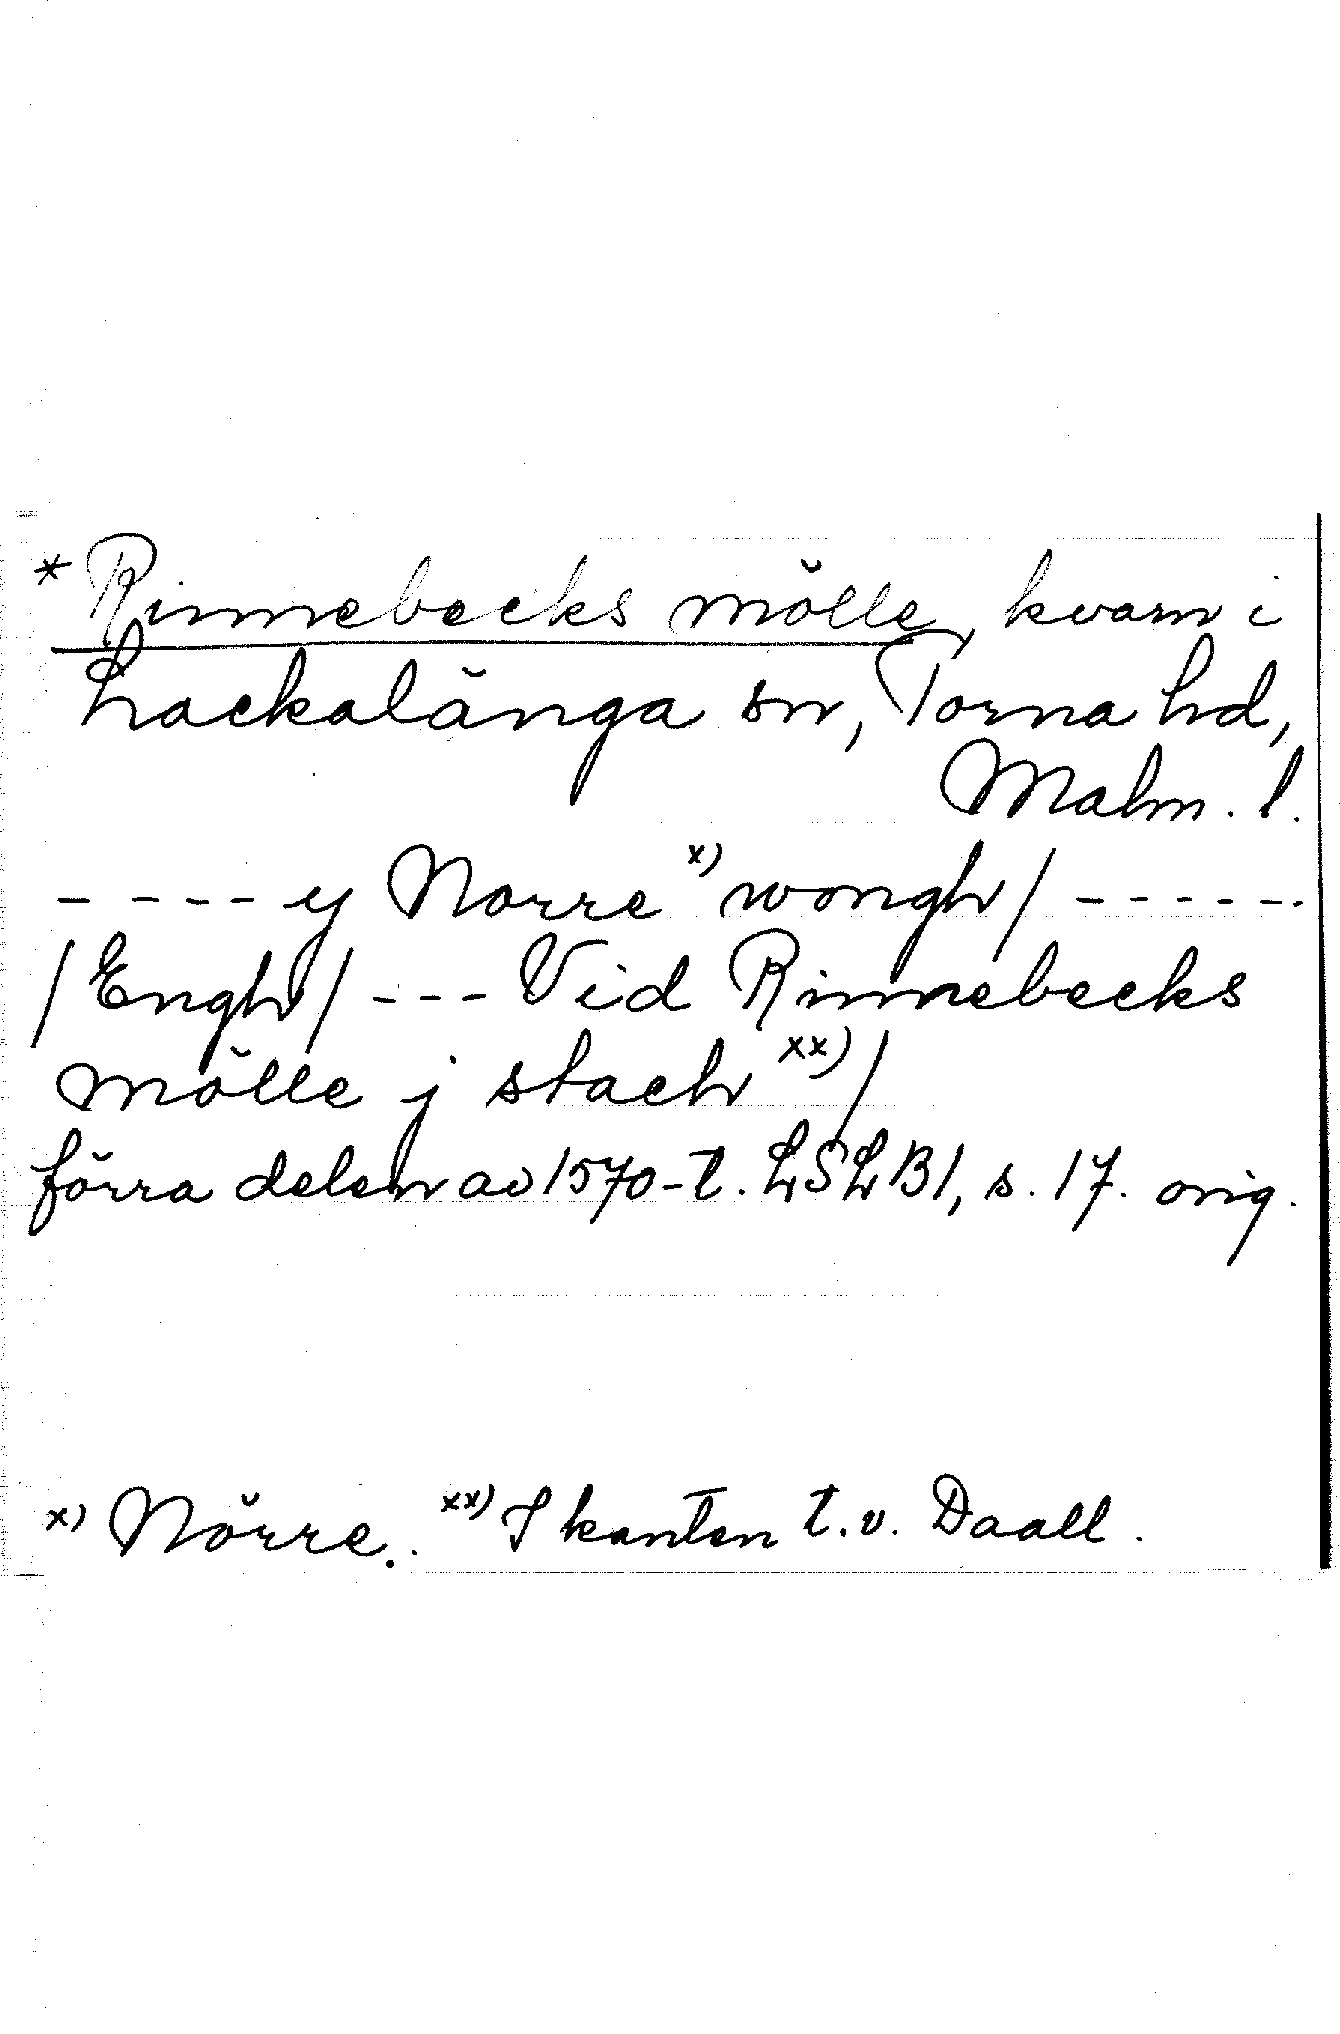 * Rinnebecks mölle, kvarn i
Lackalänga sn, Torna hd,
Malm. l.
- - - - - y Norre x) wongh / - - - - - -
/ Engh / - - - Vid Rinnebecks
mölle j stach xx) /
förra delen av 1570-t. LSLB1, s. 17. orig.
x) Nörre. . xx) I kanten t.v. Daall.